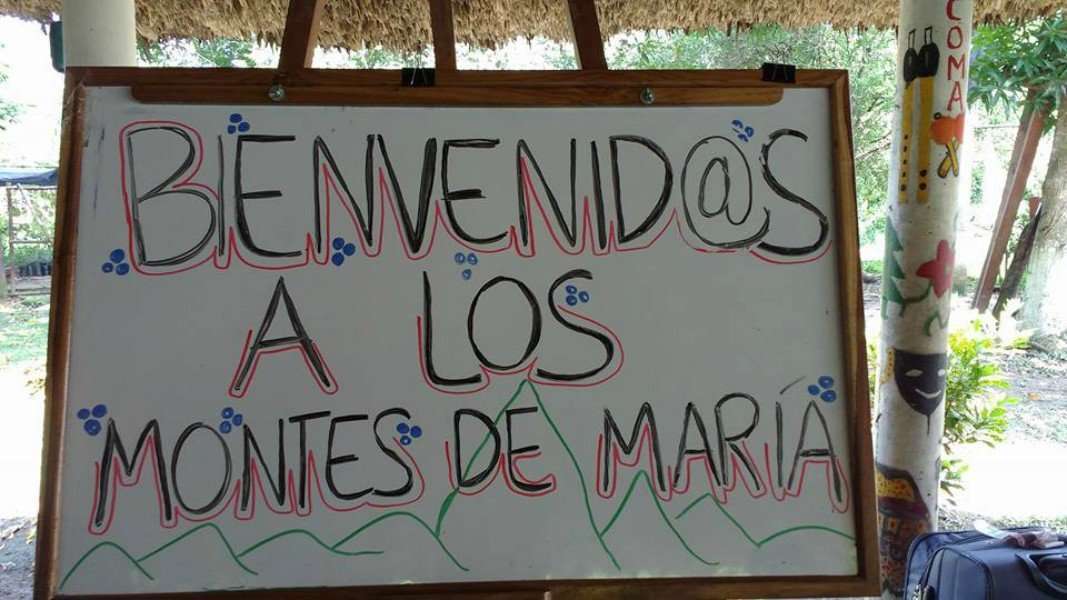 BIENVENID@S
A LOS
MONTES DE MARÍA
COMA